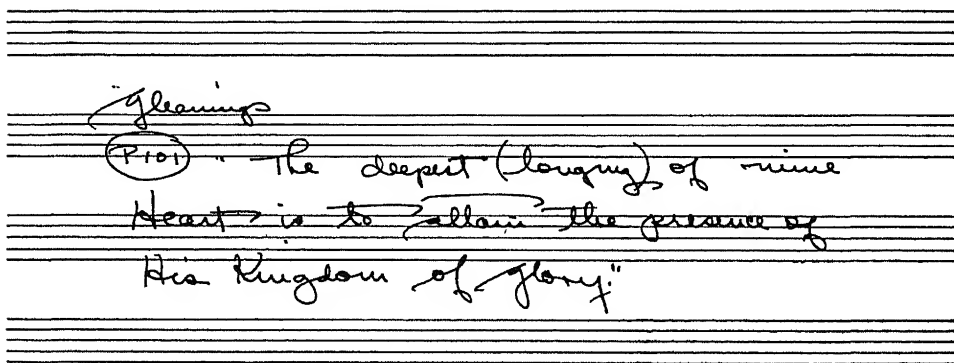 "Gleanings
P101 "The deepest (longing) of mine
Heart is to attain the presence of
His Kingdom of glory."